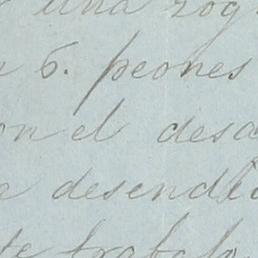 una rog
6. peones
on el desa
a desend
te trabajo